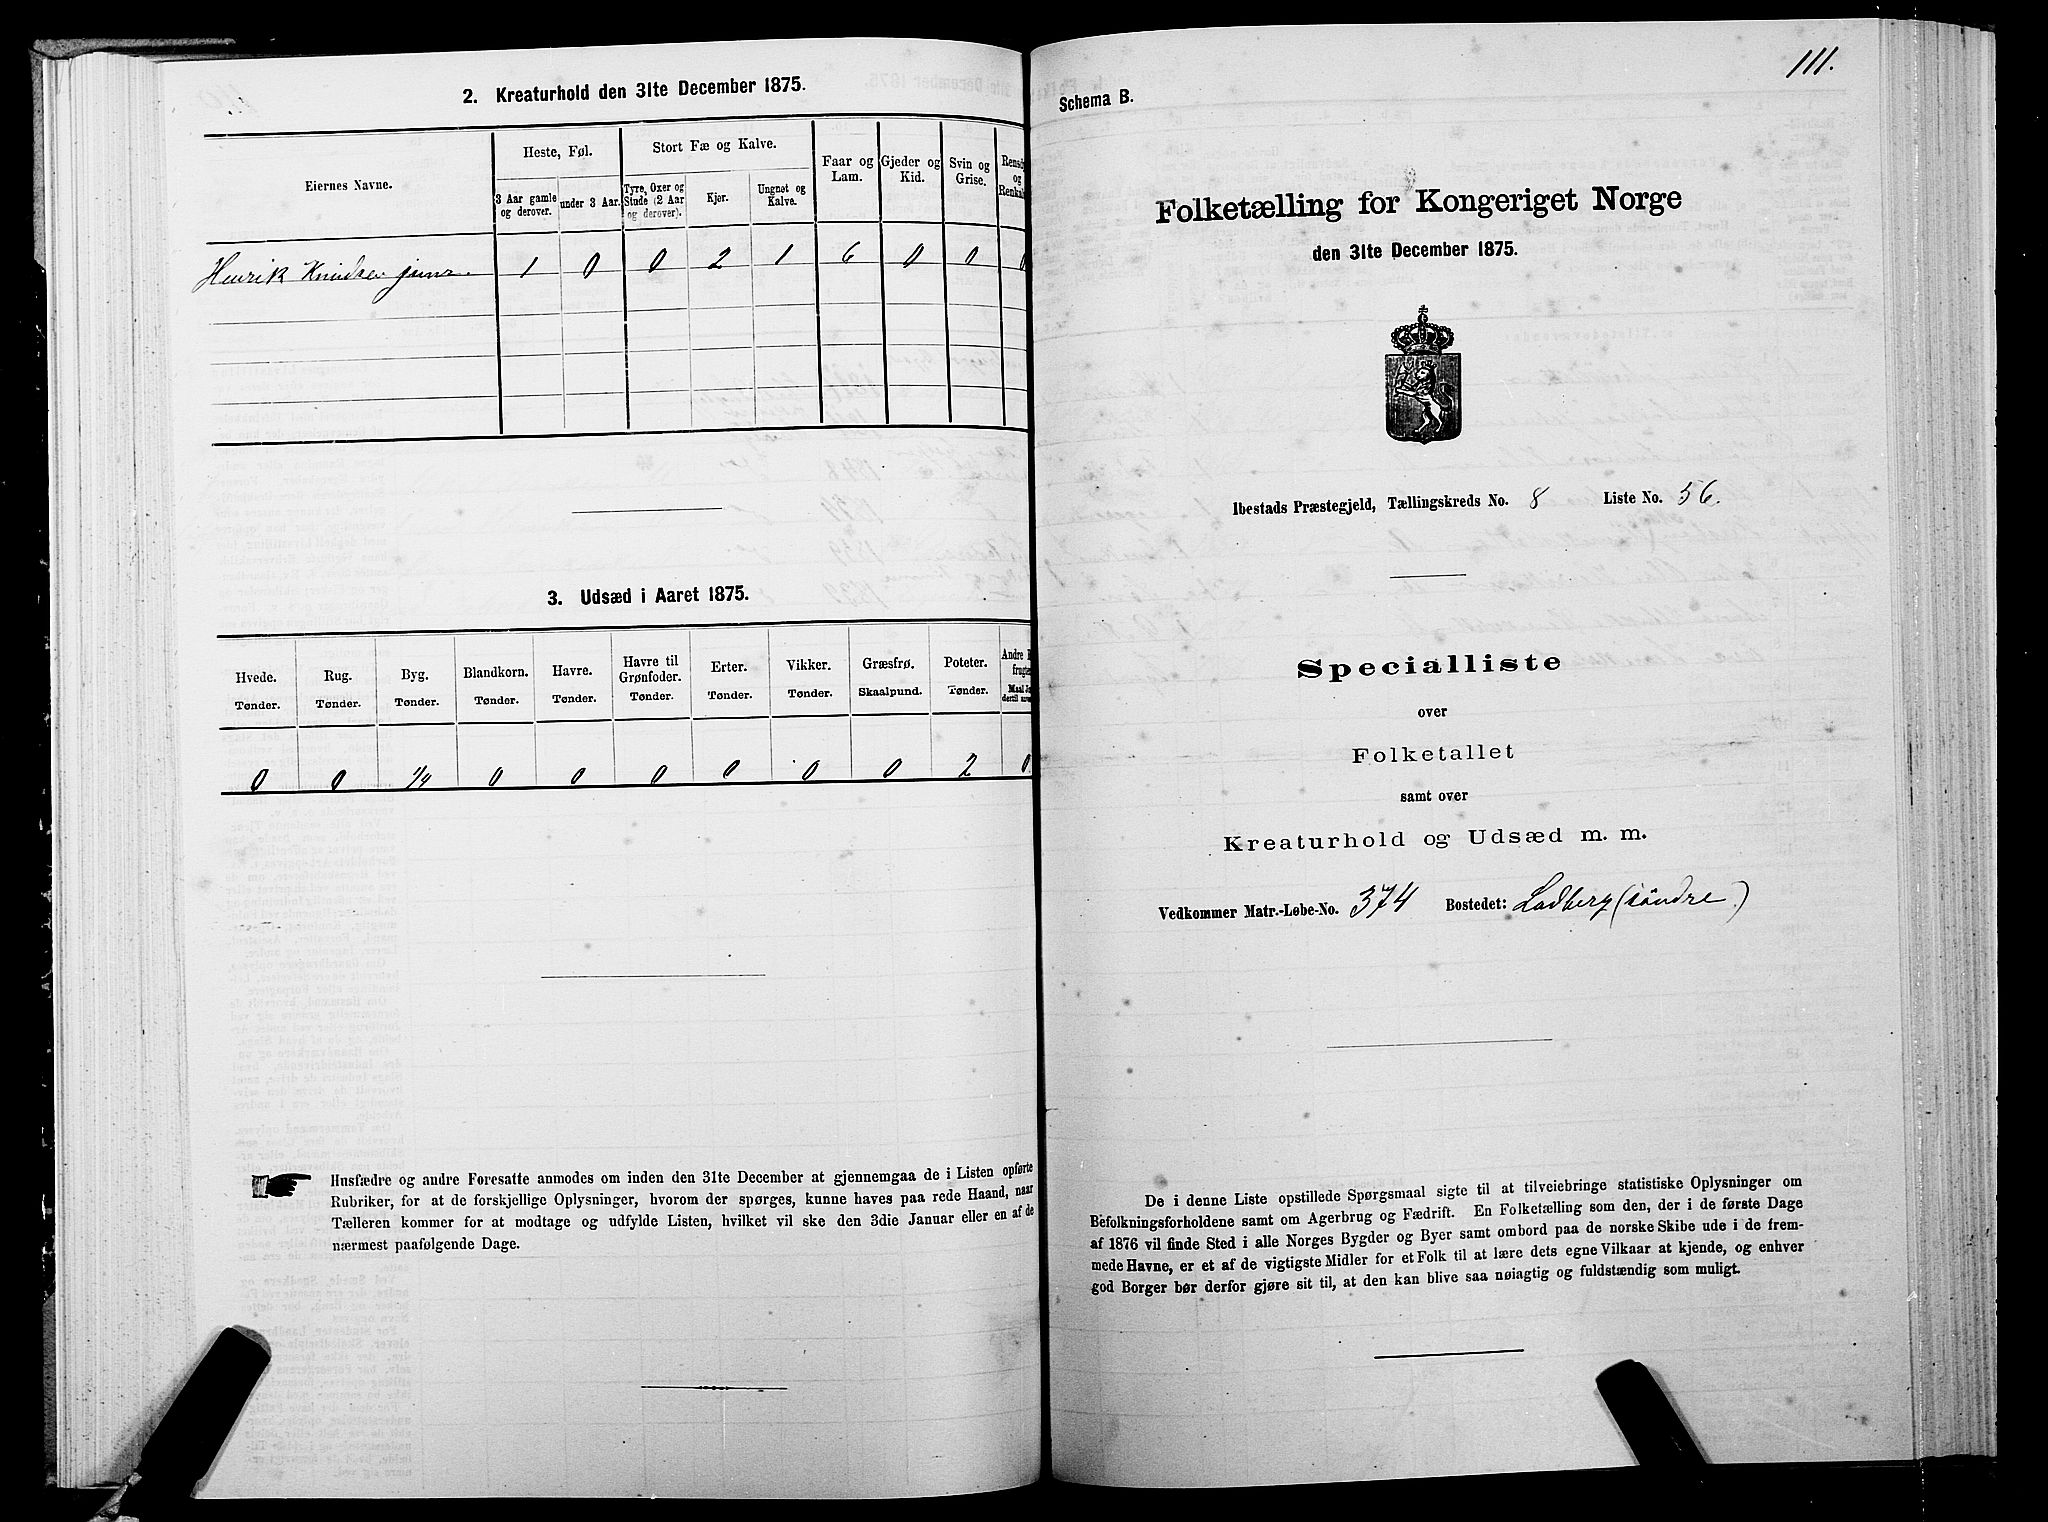 2. Kreaturhold den 31te December 1875.
Eiernes Navne.
Heste, Føl.
Stort Fæ og Kalve.
Faar og
Lam.
Gjeder og
Kid.
Svin og
Grise.
og
3 Aar gamle
og derover.
under 3 Aar.
Tyre, Oxer og
Stude (2 Aar
og derover).
Kjør.
Ungnøt og
Kalve.
Henrik Knudsen junr. 1 0 0 2 1 6 0 0 0
3. Udsæd i Aaret 1875.
Hvede.
Tønder.
Rug.
Tønder.
Byg.
Tønder.
Blandkorn.
Tønder.
Havre.
Tønder.
Havre til
Grønfoder.
Tønder.
Erter.
Tønder.
Vikker.
Tønder.
Græsfrø.
Skaalpund.
Poteter.
Tønder.
Andre
0 0 1/4 0 0 0 0 0 0 2 0
Husfædre og andre Foresatte anmodes om inden den 31te December at gjennemgaa de i Listen opførte
Rubriker, for at de forskjellige Oplysninger, hvorom der spørges, kunne haves paa rede Haand, naar
Tælleren kommer for at modtage og udfylde Listen, hvilket vil ske den 3die Januar eller en af de
nærmest paafølgende Dage.
111.
Schema B.
Folketælling for Kongeriget Norge
den 31te December 1875.
Ibestads Præstegjeld, Tællingskreds No. 8 Liste No. 56.
Specialliste
over
Folketallet
samt over
Kreaturhold og Udsæd m. m.
Vedkommer Matr.-Løbe-No. 374 Bostedet: Ladberg (søndre)
De i denne Liste opstillede Spørgsmaal sigte til at tilveiebringe statistiske Oplysninger om
Befolkningsforholdene samt om Agerbrug og Fædrift. En Folketælling som den, der i de første Dage
af 1876 vil finde Sted i alle Norges Bygder og Byer samt ombord paa de norske Skibe ude i de frem-
mede Havne, er et af de vigtigste Midler for et Folk til at lære dets egne Vilkaar at kjende, og enhver
god Borger bør derfor gjøre sit til, at den kan blive saa nøiagtig og fuldstændig som muligt.